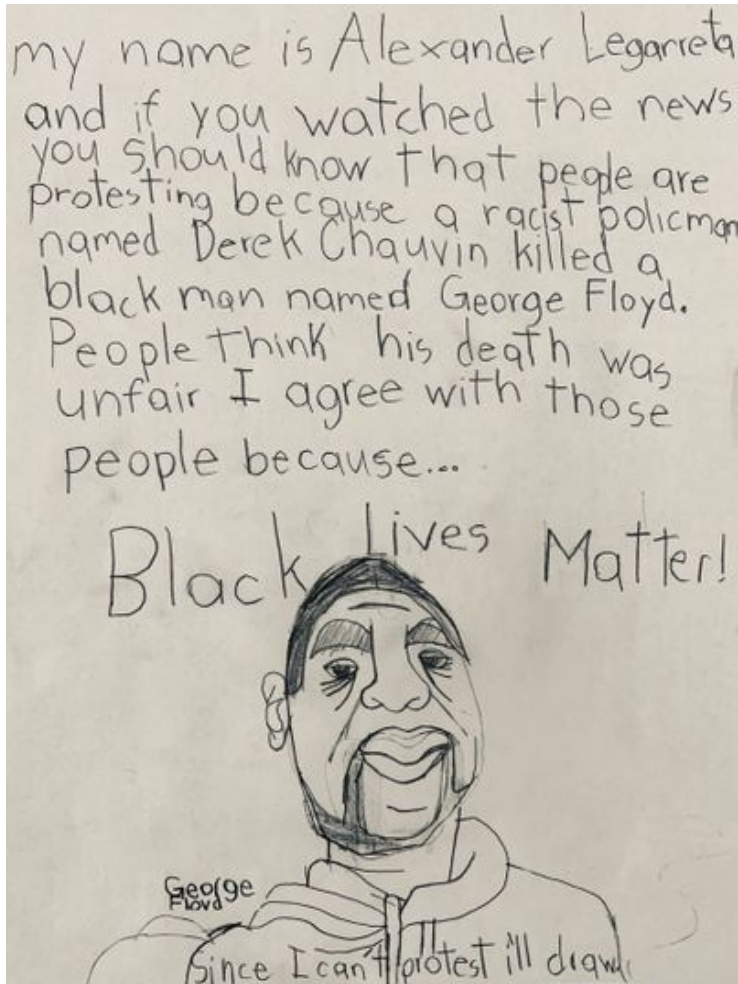 my name is Alexander Legarreta
and if you watched the news
you should know that peaple are
protesting because a racist policman
named Derek Chauvin killed a
black man named George Floyd.
People think his death was
unfair I agree with those
people because...
Black Lives Matter!
George
Floyd
Since I can't protest i'll draw